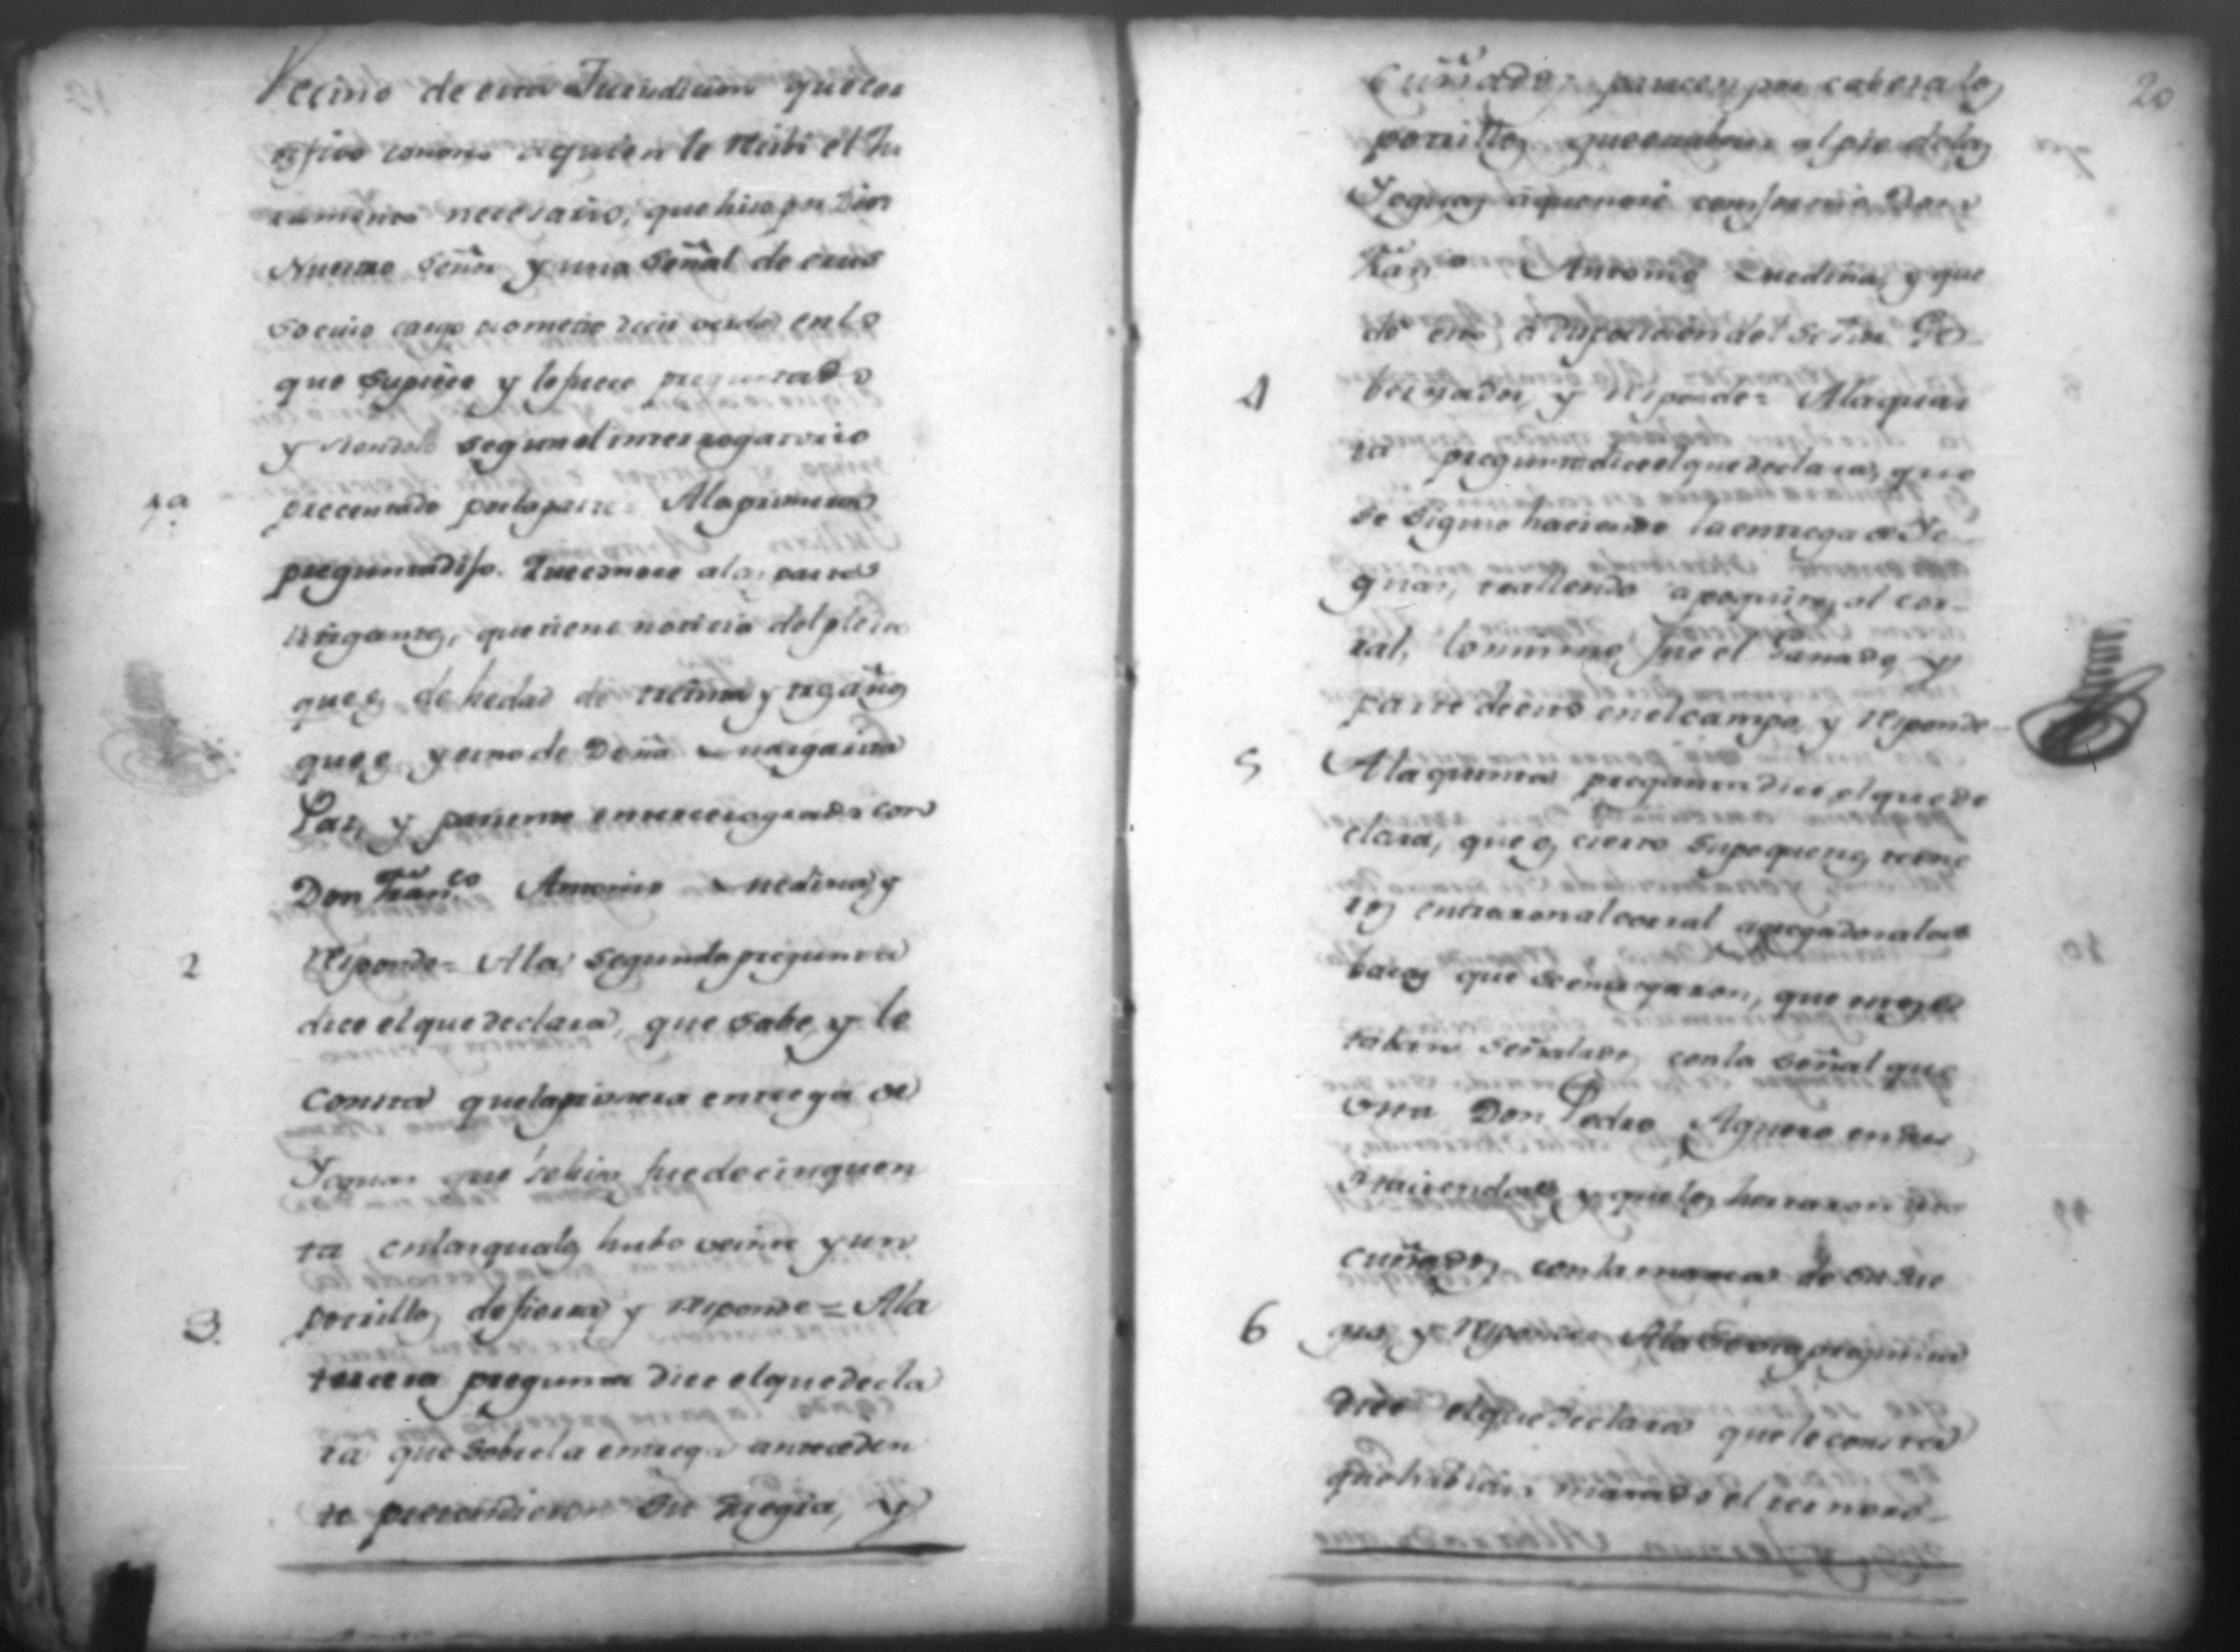 Vecino de esta Jurisdicion que cer
tifico conosco a quien le recibi el Ju
ramento necesario, que hiso por Dios
Nuestro Señor y una Señal de crus
so cuio cargo prometio decir verdad en lo
que supiere y le fuere preguntado
y siendolo segun el interrogatorio
1a. precentado por la parte = A la primera
pregunta dijo. Que conoce a las partes
litigantes, que tiene noticia del pleito
que es de hedad de treinta y tres años
que es yerno de Doña Margarita
Paz, y pariente en tercero grado con
Don Fran.co Antonio Medina, y
2 responde = A la segunda pregunta
dice el que declara, que sabe, y le
consta que la primera entrega de
Yeguas que se hiso fue de cinquen
ta en las quales hubo veinte y un
3. potrillos de hierra y responde = A la
tercera pregunta dice el que decla
ra que sobre la entrega anteceden
te pretendieron su suegra, y
20
Cuñados pasasen por cabesa los
potrillos que estaban al pie de las
Yeguas a que no
Fran.co Antonio Medina, y que
do esto a disposicion del Señor Go
4 bernador, y responde = A la quar
ta pregunta dice el que declara, que
se siguio haciendo la entrega de Ye
guas, trallendo a poquitos al cor-
ral, lo mismo fue el Ganado, y
parte de esto en el campo, y responde
5 A la quinta pregunta dice el que de
clara, que es cierto supo que tres terne
ros entraron al corral apegados a las
bacas que se entregaron, que estos es
taban señalados con la señal que
usa Don Pedro Aguero en sus
Haciendas, y que los herraron sus
cuñados con la marca de su sue
6 gra, y responde = A la Sexta pregunta
dice el que declara que le consta
que habian matado el ternero